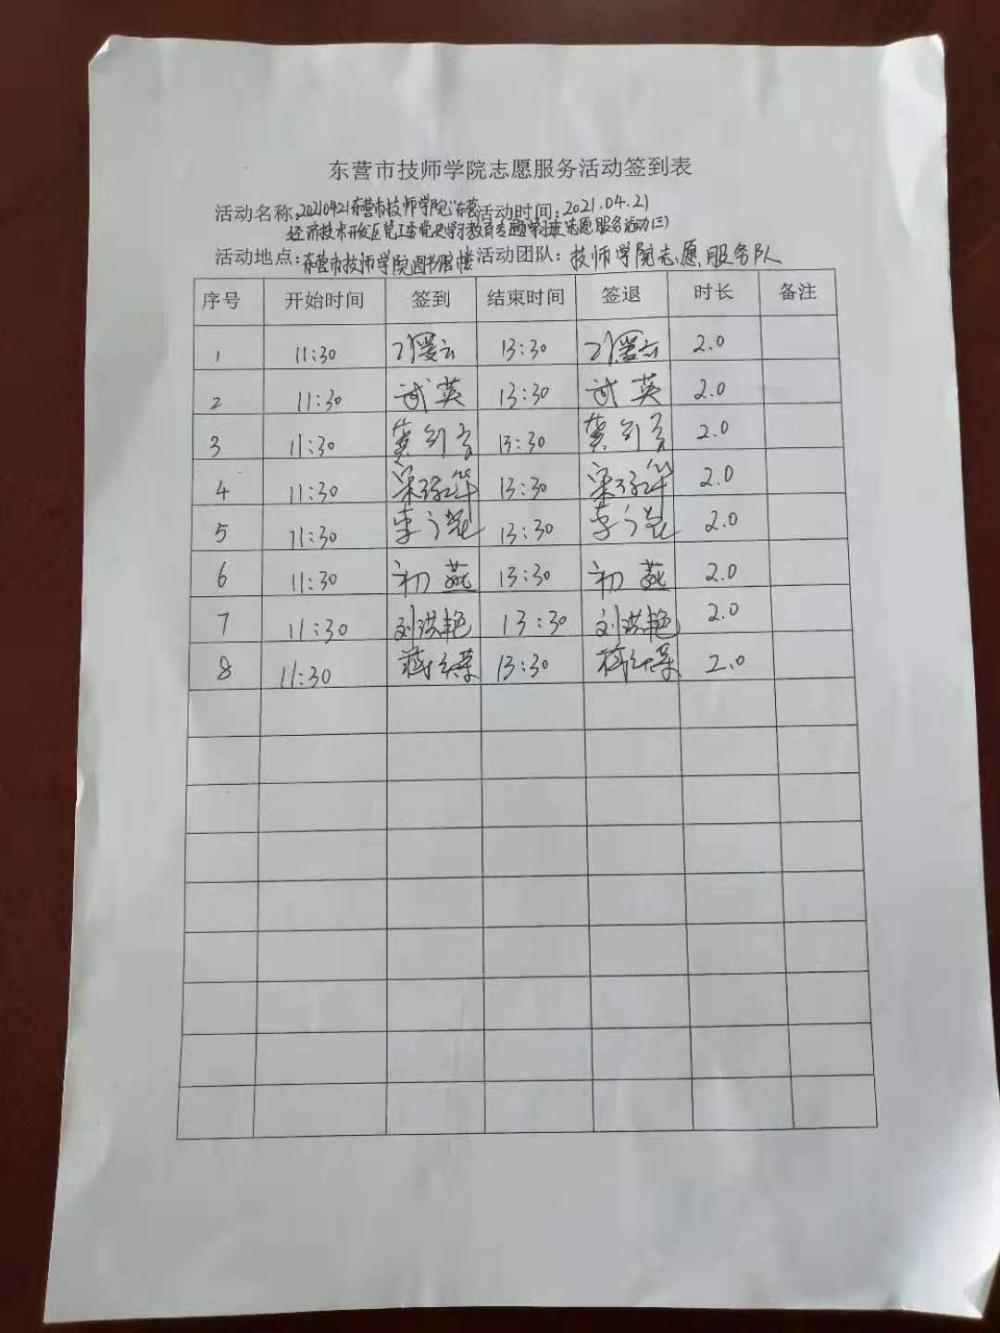 东营市技师学院志愿服务活动签到表
活动名称:20210421东营市技师学院"东营 活动时间:2021.04.21
经济技术开发区党工委党史学习教育专题学习班"志愿服务活动(三)
活动地点:东营市技师学院图书馆楼 活动团队:技师学院志愿服务队
序号 开始时间 签到 结束时间 签退 时长 备注
1 11:30 13:30 2.0
2 11:30 武英 13:30 武英 2.0
3 11:30 13:30 2.0
4 11:30 13:30 2.0
5 11:30 13:30 2.0
6 11:30 初燕 13:30 初燕 2.0
7 11:30 刘洪艳 13:30 刘洪艳 2.0
8 11:30 13:30 2.0